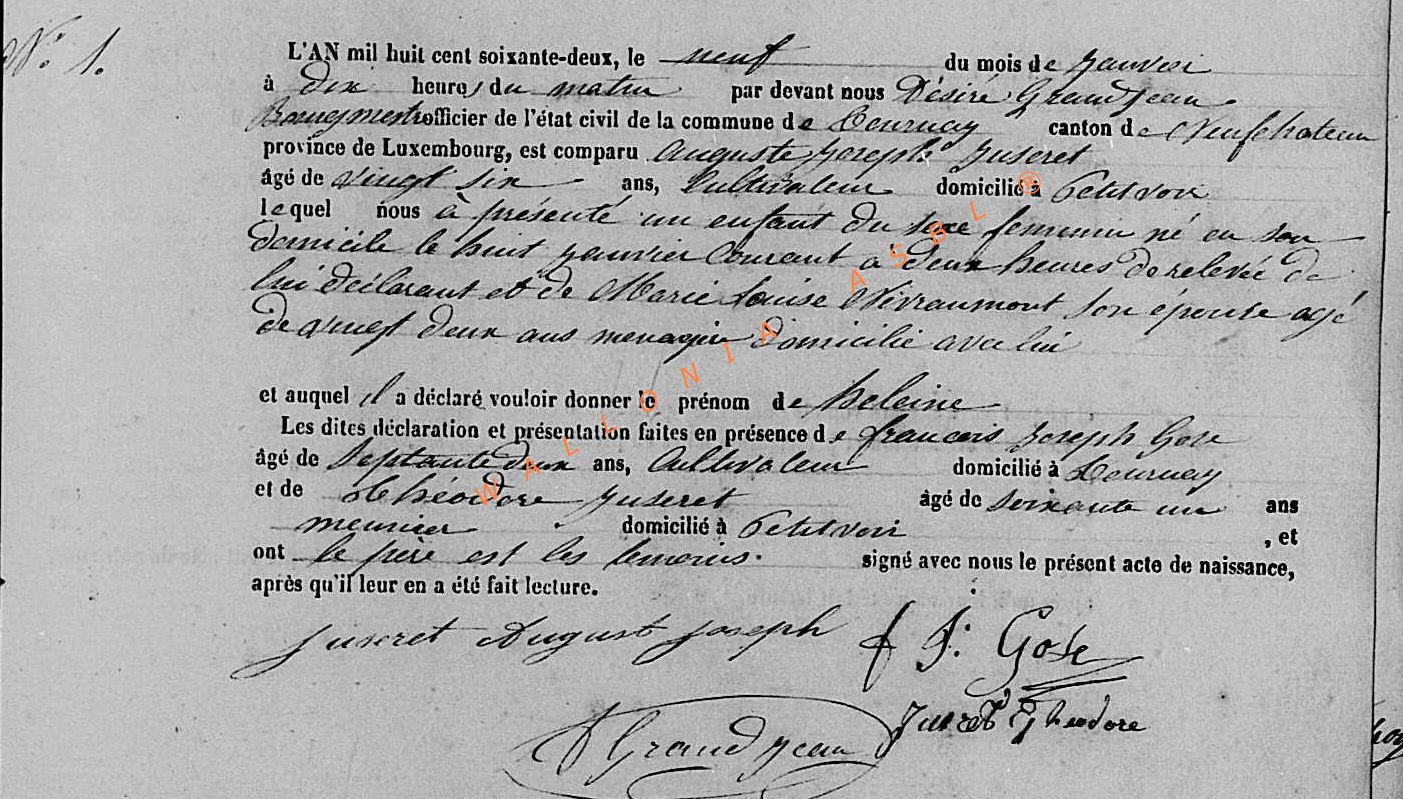 N° 1.
L'AN mil huit cent soixante-deux, le neuf du mois de Janvier
à Dix heures du matin par devant nous Désiré Grandjean
Bourgmestre officier de l'état civil de la commune de Tournay canton de Neufchateau
province de Luxembourg, est comparu Auguste Joseph Juseret
âgé de vingt six ans, Cultivateur domicilié à Petitvoir
lequel nous à présenté un enfant du sexe feminin né en son
domicile le huit janvier Courant à deux heures de relevée de
lui déclarant et de Marie Louise Névraumont son épouse agé
de vingt deux ans menagère domicilié avec lui
et auquel il a déclaré vouloir donner le prénom de heleine
Les dites déclaration et présentation faites en présence de francois Joseph Gose
âgé de Septante deux ans, Cultivateur domicilié à Tournay
et de Théodore Juseret âgé de soixante un ans
meunier domicilié à Petitvoir , et
ont le père est les temoins. signé avec nous le présent acte de naissance,
après qu'il leur en a été fait lecture.
Juseret August Joseph f J: Gose
Juseret Theodore
D Grandjean
WALLONIA ASBL ®